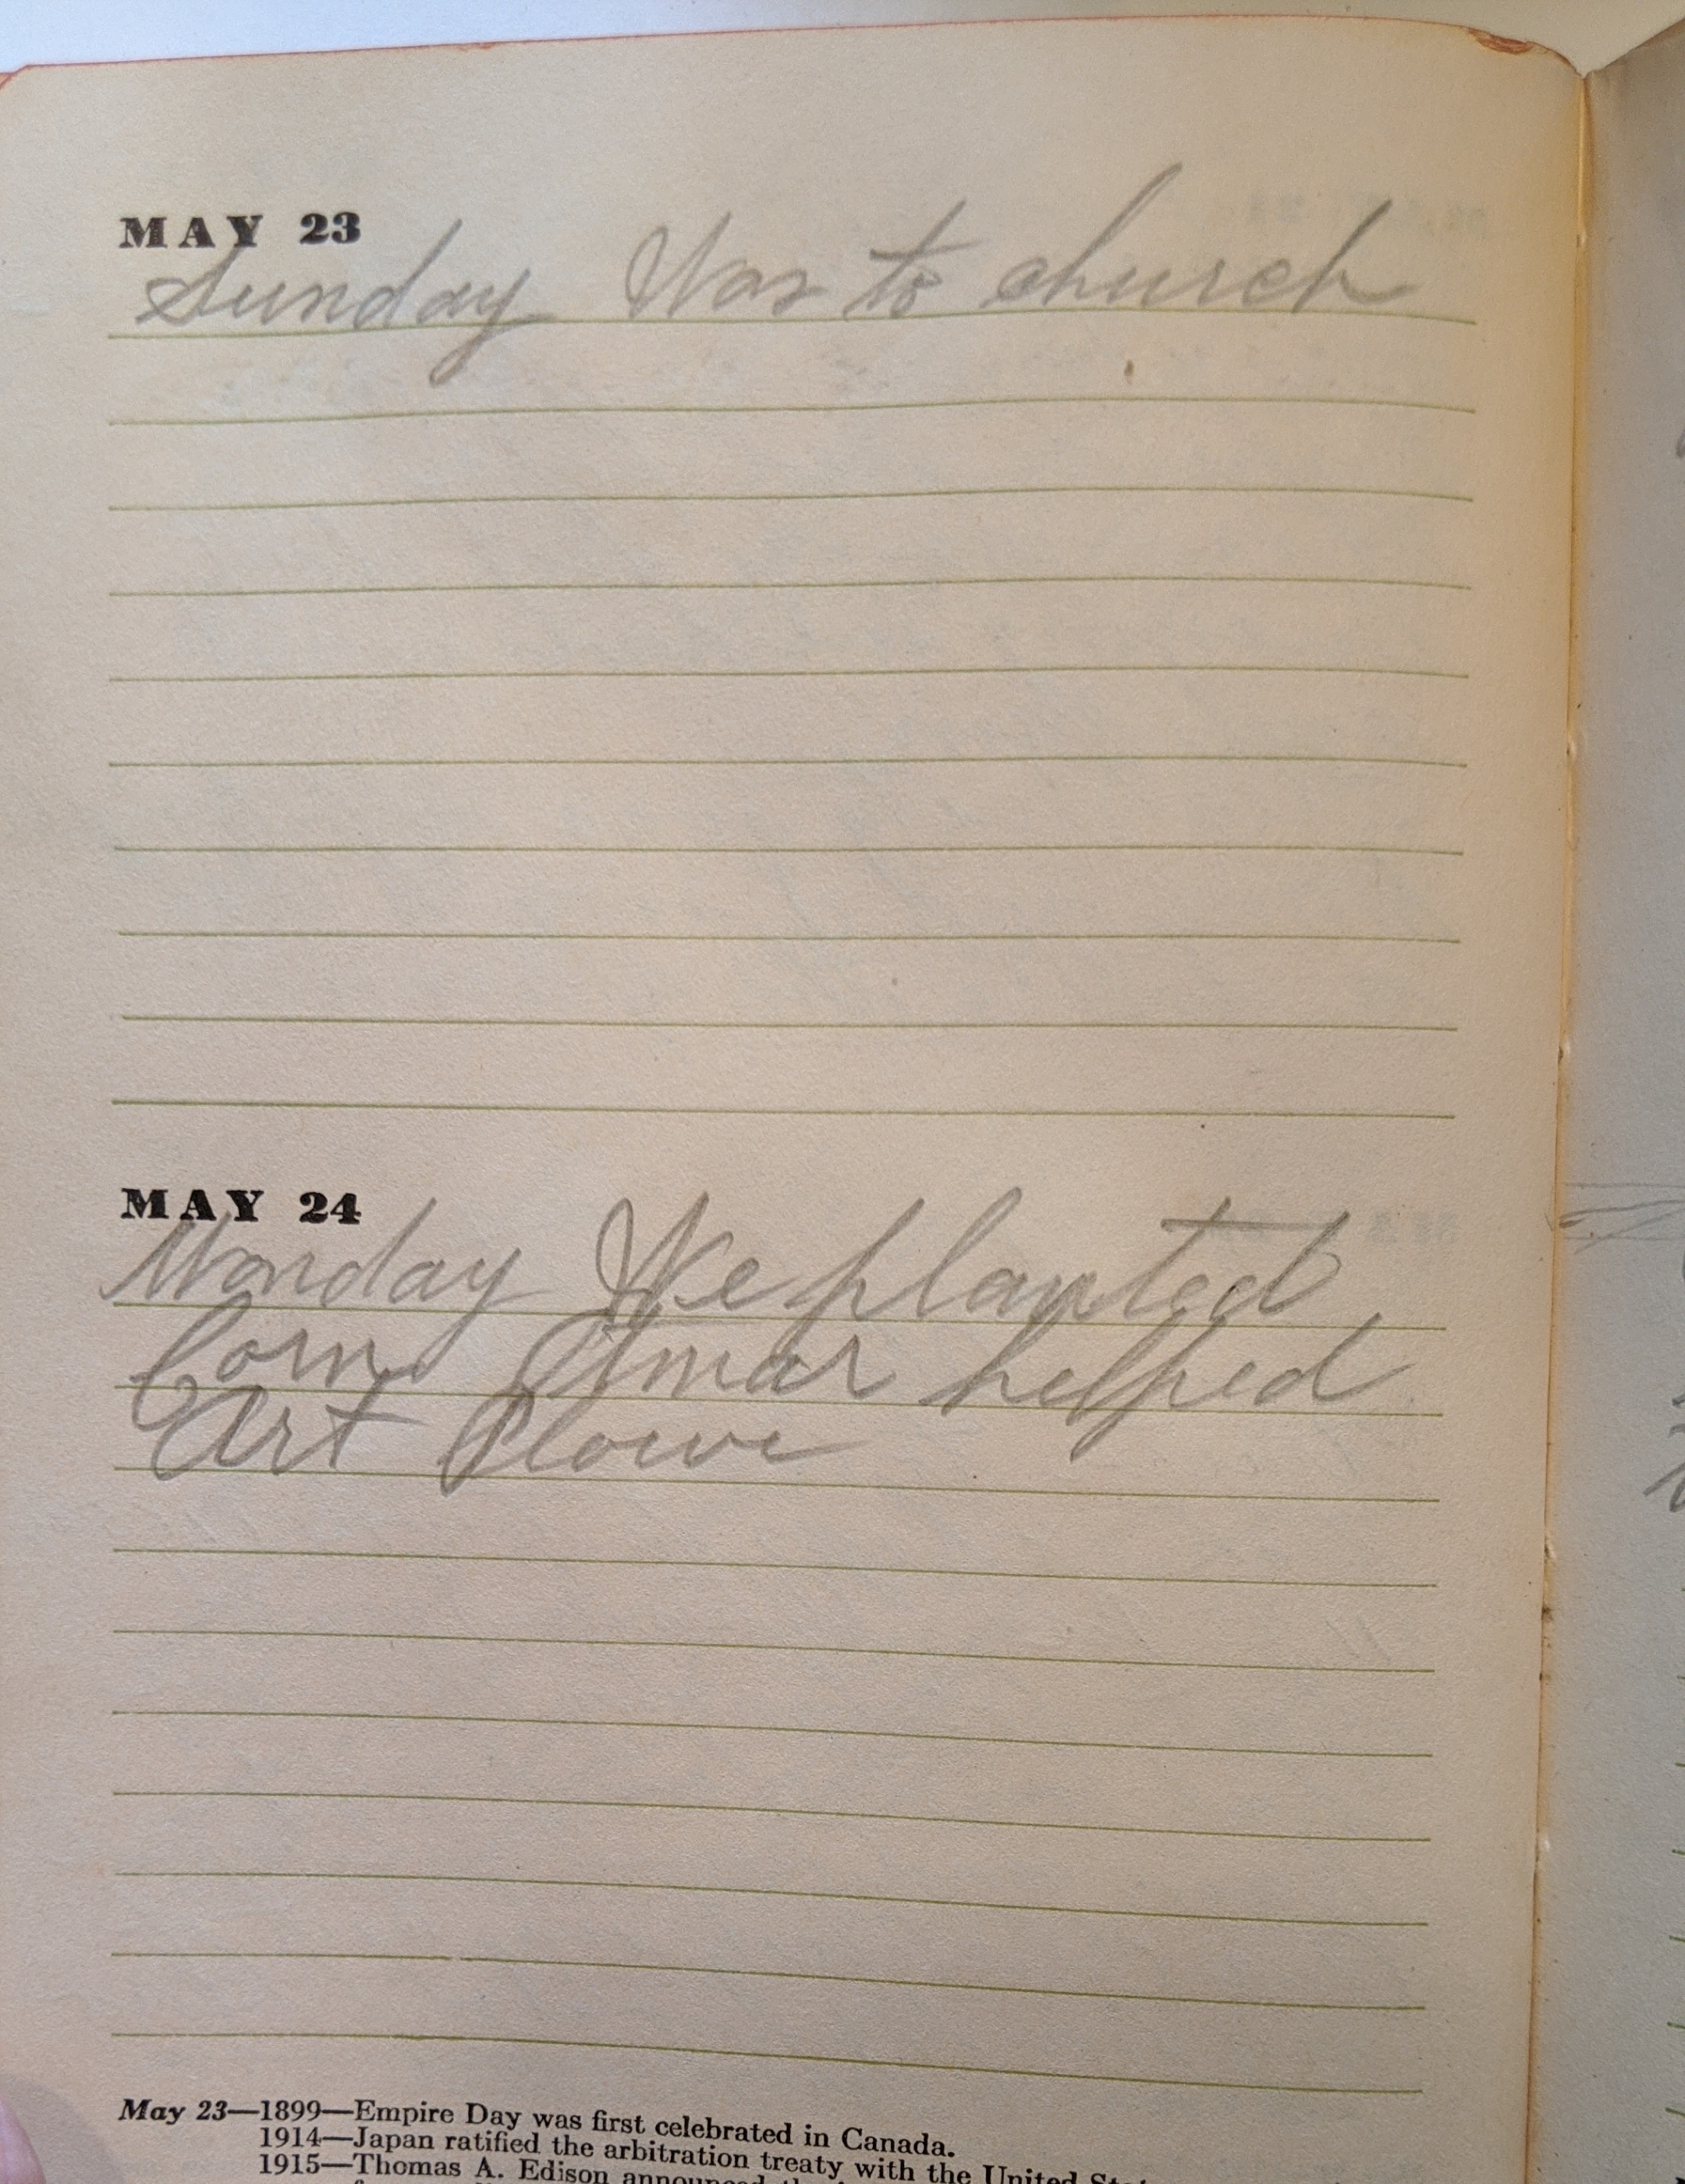 MAY 23
Sunday Was to church
MAY 24
Monday We planted
Corn Elmar helped
Art Plowe
May 23—1899—Empire Day was first celebrated in Canada.
1914—Japan ratified the arbitration treaty with the United
1915—Thomas A. Edison